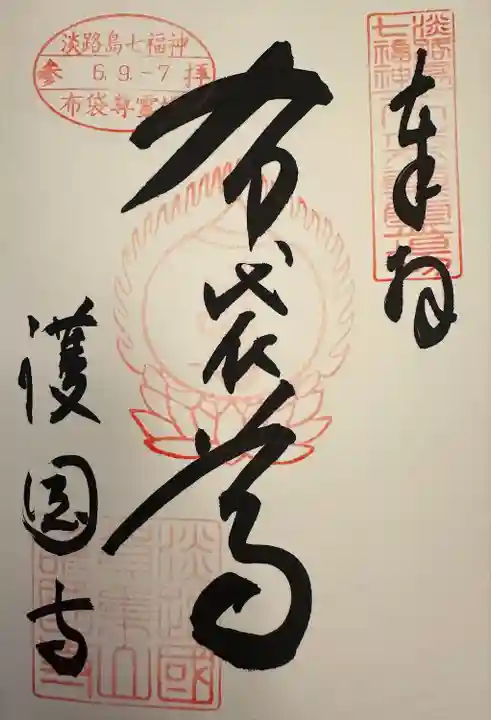 淡路島
七福神
奉拝
淡路島七福神
参 6.9.-7 拝
布袋尊霊場
布袋尊
護国寺
淡路國